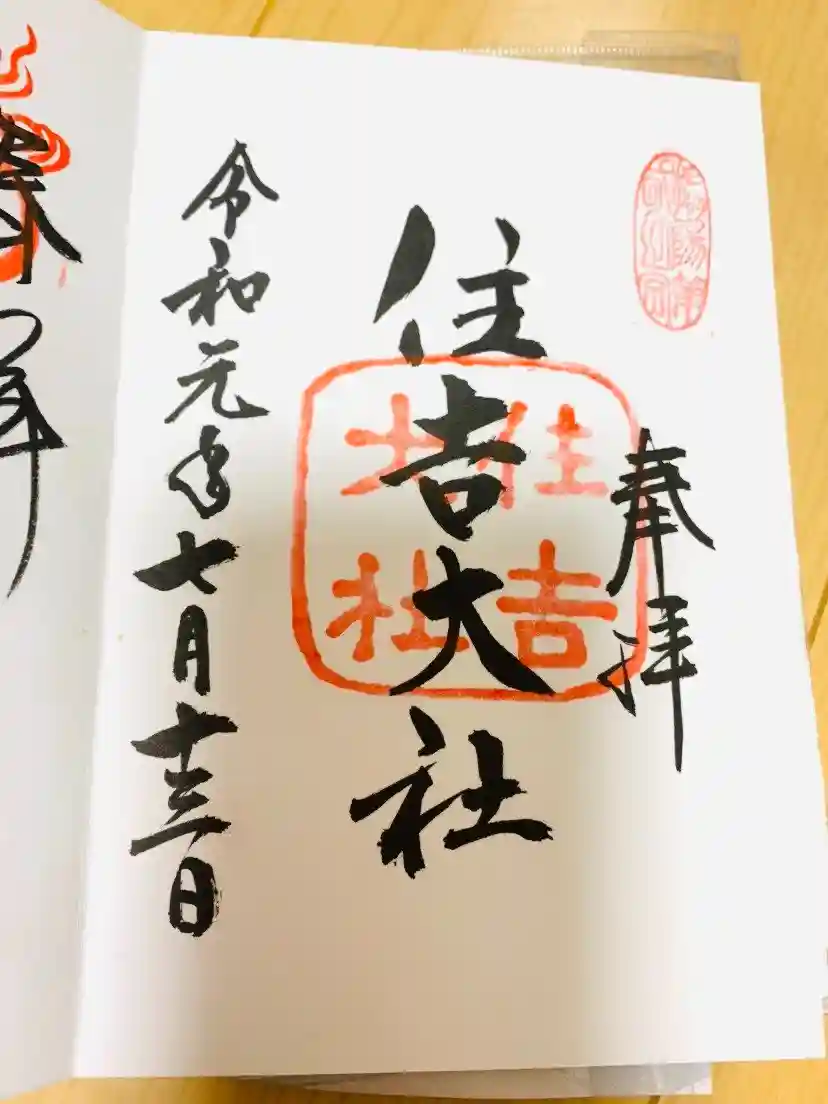 奉拝
住吉大社
令和元年七月十三日
住吉
大社
奉拝